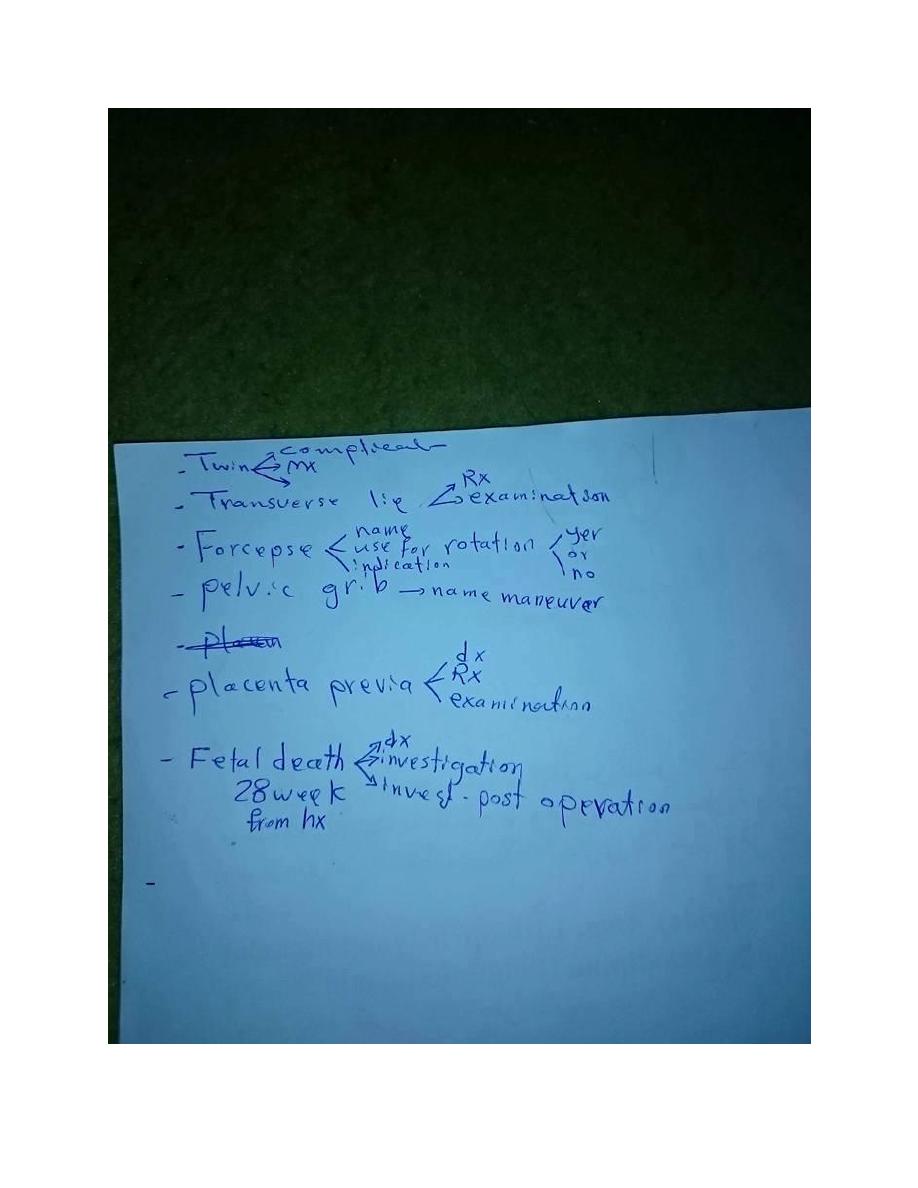 - Twin complicat
mx
- Transverse lie Rx
examination
- Forcepse name
use for rotation yer
or
no
indication
- pelvic grib → name maneuver
- placenta previa dx
Rx
examination
- Fetal death dx
investigation
28 week invest. post operation
from hx
-